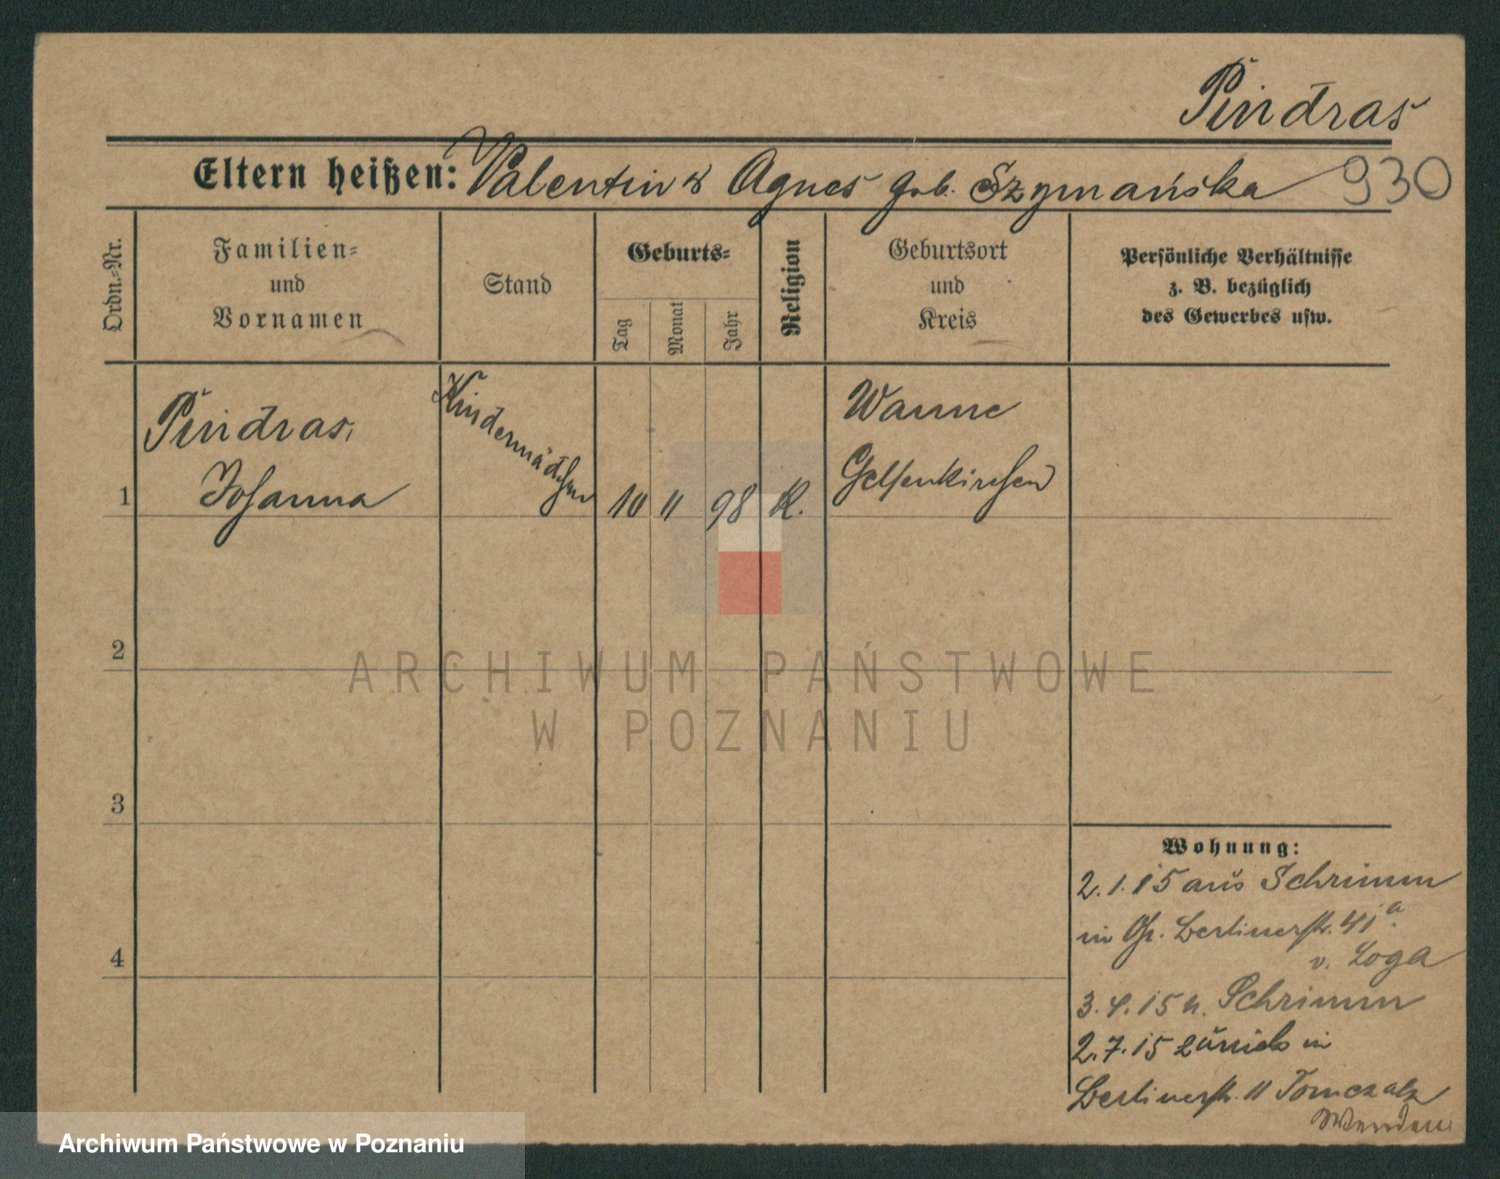 Pindras
Eltern heißen: Valentin & Agnes geb. Szymańska 930
Ordn.=Nr.
Familien=
und
Vornamen
Stand
Geburts=
Tag
Monat
Jahr
Religion
Geburtsort
und
Kreis
Persönliche Verhältnisse
z. B. bezüglich
des Gewerbes usw.
1
Pindras,
Johanna
Kindermädchen
10 11 98 K.
Wanne
Gelsenkirchen
2
3
4
Wohnung:
2.1.15 aus Schrimm
in Gr. Berlinerstr. 41a.
v. Loga
3.4.15 n. Schrimm
2.7.15 zurück in
Berlinerstr. 11 Tomczak
Wenden
ARCHIWUM PAŃSTWOWE
W POZNANIU
Archiwum Państwowe w Poznaniu